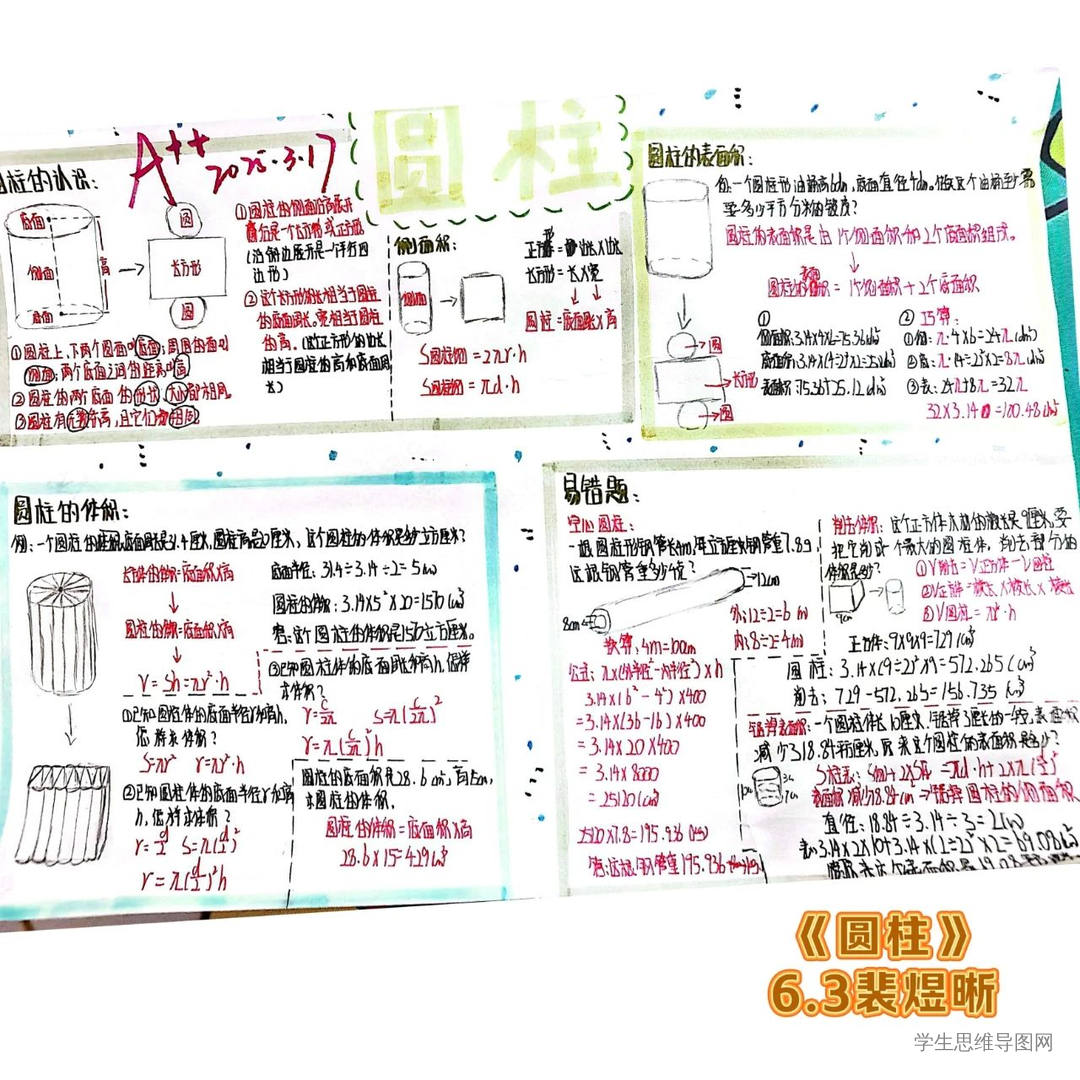 圆柱
A++
2025.3.17
圆柱的认识：
底面
侧面
高
底面
圆
长方形
圆
①圆柱上、下两个圆面叫底面；周围的面叫
侧面；两个底面之间的距离叫高
②圆柱的两个底面的形状、大小都相同。
③圆柱有无数条高，且它们都相同
①圆柱的侧面沿高展开
后是一个长方形或正方形
(沿斜边展开是一个平行四
边形)
②这个长方形的长相当于圆柱
的底面周长。宽相当于圆柱
的高。(这个正方形的边长
相当于圆柱的高和底面周
长)
侧面积：
侧面
正方形=边长×边长
长方形=长×宽
圆柱=底面周长×高
S圆柱侧=2πr·h
S圆柱侧=πd·h
圆柱的表面积：
例一个圆柱形油桶高6dm,底面直径4dm。做这个油桶至少需
要多少平方分米的铁皮？
圆柱的表面积是由1个侧面积和2个底面积组成。
圆柱的表面积=1个侧面积+2个底面积
圆
长方形
圆
①
侧面积:3.14×4×6=75.36dm²
底面积:3.14×(4÷2)²×2=25.12dm²
表面积:75.36+25.12 dm²
②巧算：
①侧:π·4×6=24π(dm²)
②底:π·(4÷2)²×2=8π(dm²)
③表:24π+8π=32π
32×3.14=100.48dm²
圆柱的体积：
例:一个圆柱的底面周长是31.4厘米,圆柱高是20厘米，这个圆柱的体积是多少立方厘米？
长方体的体积=底面积×高
圆柱的体积=底面积×高
V=Sh=πr²·h
底面半径：31.4÷3.14÷2=5cm
圆柱的体积：3.14×5²×20=1570(cm³)
答：这个圆柱的体积是1570立方厘米。
①已知圆柱体的底面半径r和高h，
怎样求体积？
S=πr² V=πr²·h
②已知圆柱体的底面半径r和高
h，怎样求体积？
r=d/2 S=π(d/2)²
V=π(d/2)²h
③已知圆柱体的底面周长和高h，怎样
求体积？
r=C/2π S=π(C/2π)²
V=π(C/2π)²h
圆柱的底面积是28.6cm²,高15cm,
求圆柱的体积。
圆柱的体积=底面积×高
28.6×15=429cm³
易错题：
空心圆柱：
一根圆柱形钢管长4m,每立方厘米钢管重7.8g,
这根钢管重多少克？
12cm
8cm
外:12÷2=6 cm
内:8÷2=4cm
换算：4m=400cm
公式：π×(外半径²-内半径²)×h
3.14×(6²-4²)×400
=3.14×(36-16)×400
=3.14×20×400
=3.14×8000
=25120(cm³)
25120×7.8=195.936
答:这根钢管重195.936
削去体积：这个正方体木桶的棱长是9厘米,要
把它削成一个最大的圆柱体，削去部分的
体积是多少？
9cm
①V削去=V正方体-V圆柱
②V正方体=棱长×棱长×棱长
③V圆柱=πr²·h
正方体:9×9×9=729(cm³)
圆柱:3.14×(9÷2)²×9=572.265(cm³)
削去：729-572.265=156.735(cm³)
锯掉表面积：一个圆柱体长10厘米,锯掉3厘米的一段,表面积
减少了18.84平方厘米,原来这个圆柱的表面积是多少?
S圆柱表：S侧+2×S底=πd·h+2×π(d/2)²
表面积减少18.84cm²→锯掉圆柱的侧面积
直径:18.84÷3.14÷3=2(cm)
表:3.14×2×10+3.14×(2÷2)²×2=69.08cm²
《圆柱》
6.3裴煜晰
学生思维导图网